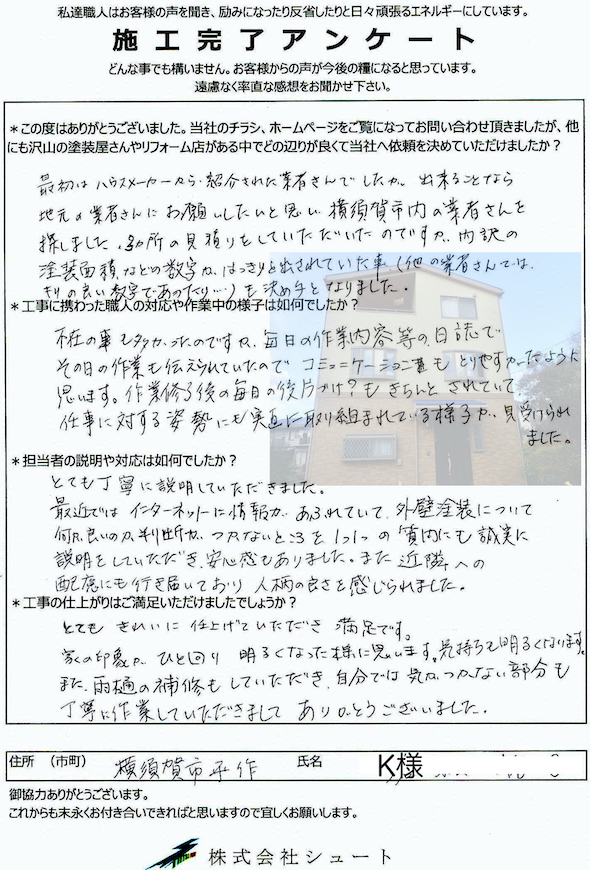 私達職人はお客様の声を聞き、励みになったり反省したりと日々頑張るエネルギーにしています。
施工完了アンケート
どんな事でも構いません。お客様からの声が今後の糧になると思っています。
遠慮なく率直な感想をお聞かせ下さい。
＊この度はありがとうございました。当社のチラシ、ホームページをご覧になってお問い合わせ頂きましたが、他
にも沢山の塗装屋さんやリフォーム店がある中でどの辺りが良くて当社へ依頼を決めていただけましたか？
最初はハウスメーカーから紹介された業者さんでしたが、出来ることなら
地元の業者さんにお願いしたいと思い、横須賀市内の業者さんを
探しました。3ヵ所の見積りをしていただいたのですが、内訳の
塗装面積などの数字が、はっきりと出されていた事（他の業者さんでは、
きりの良い数字であったり…）も決め手となりました。
＊工事に携わった職人の対応や作業中の様子は如何でしたか？
不在の事も多かったのですが、毎日の作業内容等の日誌で
その日の作業も伝えられていたのでコミュニケーションもとりやすかったように
思います。作業終了後の毎日の後片かけ？もきちんとされていて
仕事に対する姿勢にも実直に取り組まれている様子が、見受けられ
ました。
＊担当者の説明や対応は如何でしたか？
とても丁寧に説明していただきました。
最近ではインターネットに情報があふれていて、外壁塗装について
何が良いのか、判断がつかないところを1つ1つの質問にも誠実に
説明をしていただき、安心感もありました。また近隣への
配慮にも行き届いており人柄の良さを感じられました。
＊工事の仕上がりはご満足いただけましたでしょうか？
とてもきれいに仕上げていただき満足です。
家の印象がひと回り明るくなった様に思います。気持ちも明るくなります。
また、雨樋の補修もしていただき、自分では気がつかない部分も
丁寧に作業していただきましてありがとうございました。
住所　（市町）　横須賀市平作　氏名　K様
御協力ありがとうございます。
これからも末永くお付き合いできればと思いますので宜しくお願いします。
株式会社シュート